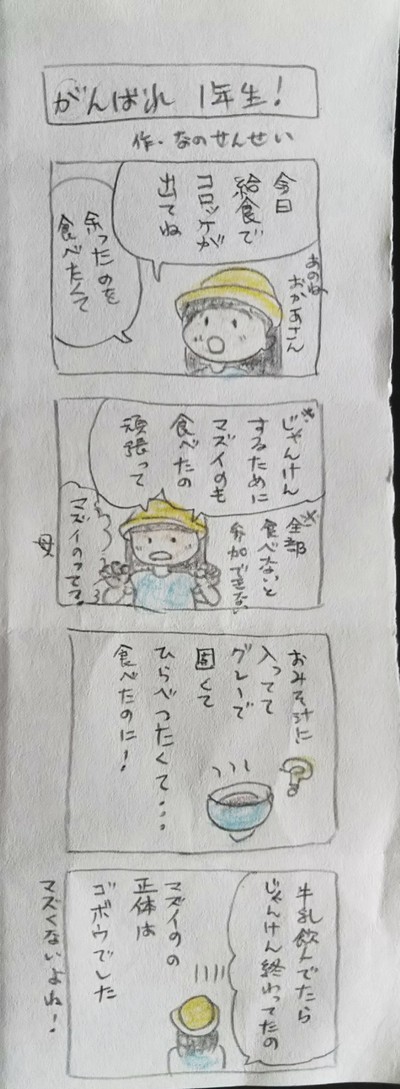 がんばれ 1年生!
作・なのせんせい
あのね、
おかあさん
今日
給食で
コロッケが
出てね
余ったのを
食べたくて
じゃんけん※
するために
マズイのも
食べたの
頑張って
※全部
食べないと
参加できない
マズイのってる?
母
おみそ汁に
入ってて
グレーで
固くて
ひらべったくて・・・
食べたのに!
牛乳飲んでたら
じゃんけん終わってたの
マズイのの
正体は
ゴボウでした
マズくないよね!